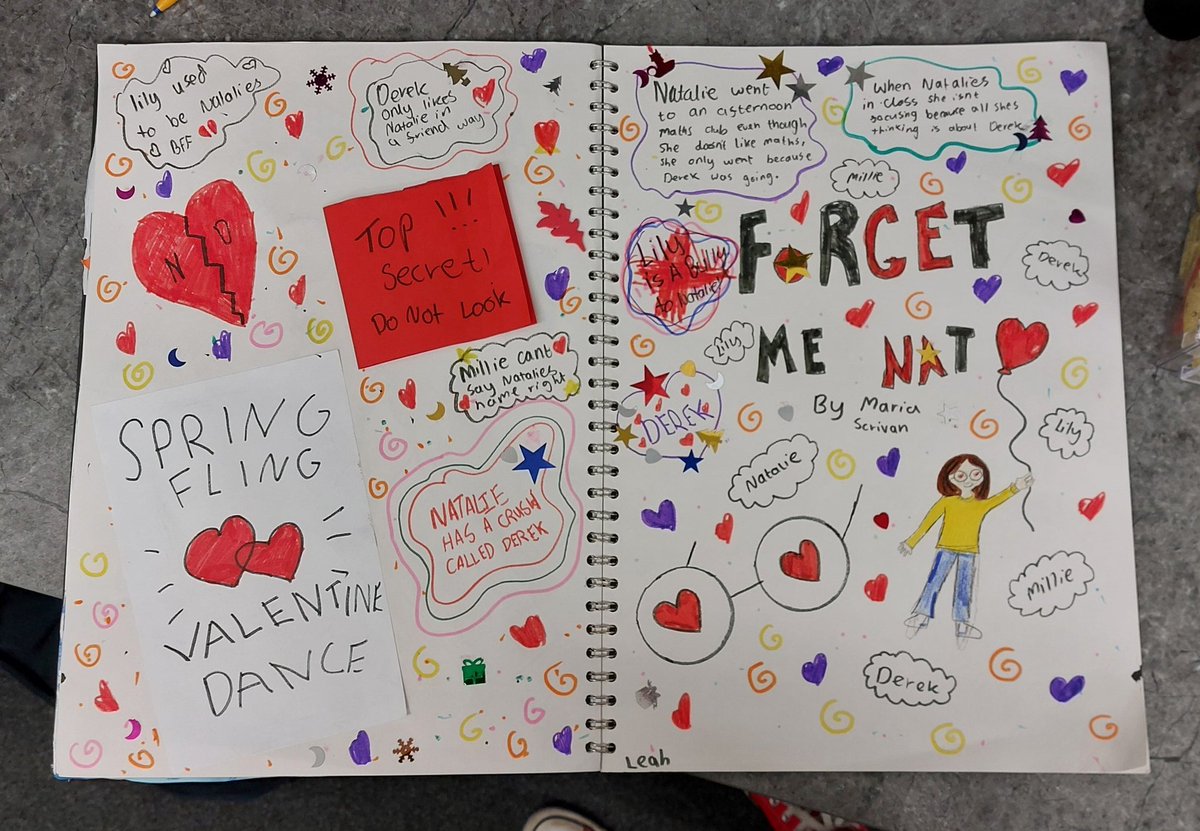 lily used
to be Natalies
BFF
Derek
only likes
Natalie in
a friend way
N
D
TOP !!!
Secret!
Do Not Look
Millie cant
say Natalies
name right
SPRING
FLING
VALENTINE
DANCE
NATALIE
HAS A CRUSH
CALLED DEREK
Natalie went
to an afternoon
maths club even though
She doesn't like maths,
she only went because
Derek was going.
When Natalies
in class she isnt
focusing because all shes
thinking is about Derek
Millie
Lily
Is A Bully
to Natalie
FORGET
ME NAT
By Maria
Scrivan
Derek
Lily
DEREK
Lily
Natalie
Millie
Derek
Leah